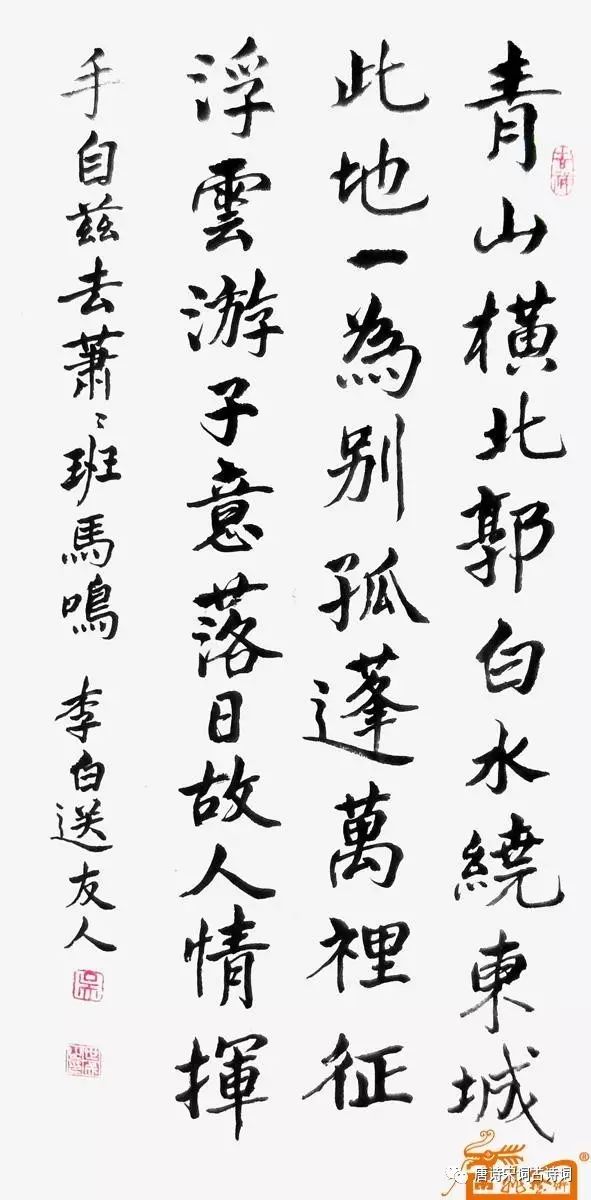 青山橫北郭白水繞東城
此地一為别孤蓬萬裡征
浮雲游子意落日故人情揮
手自茲去蕭〻班馬鳴 李白送友人
唐诗宋词古诗词